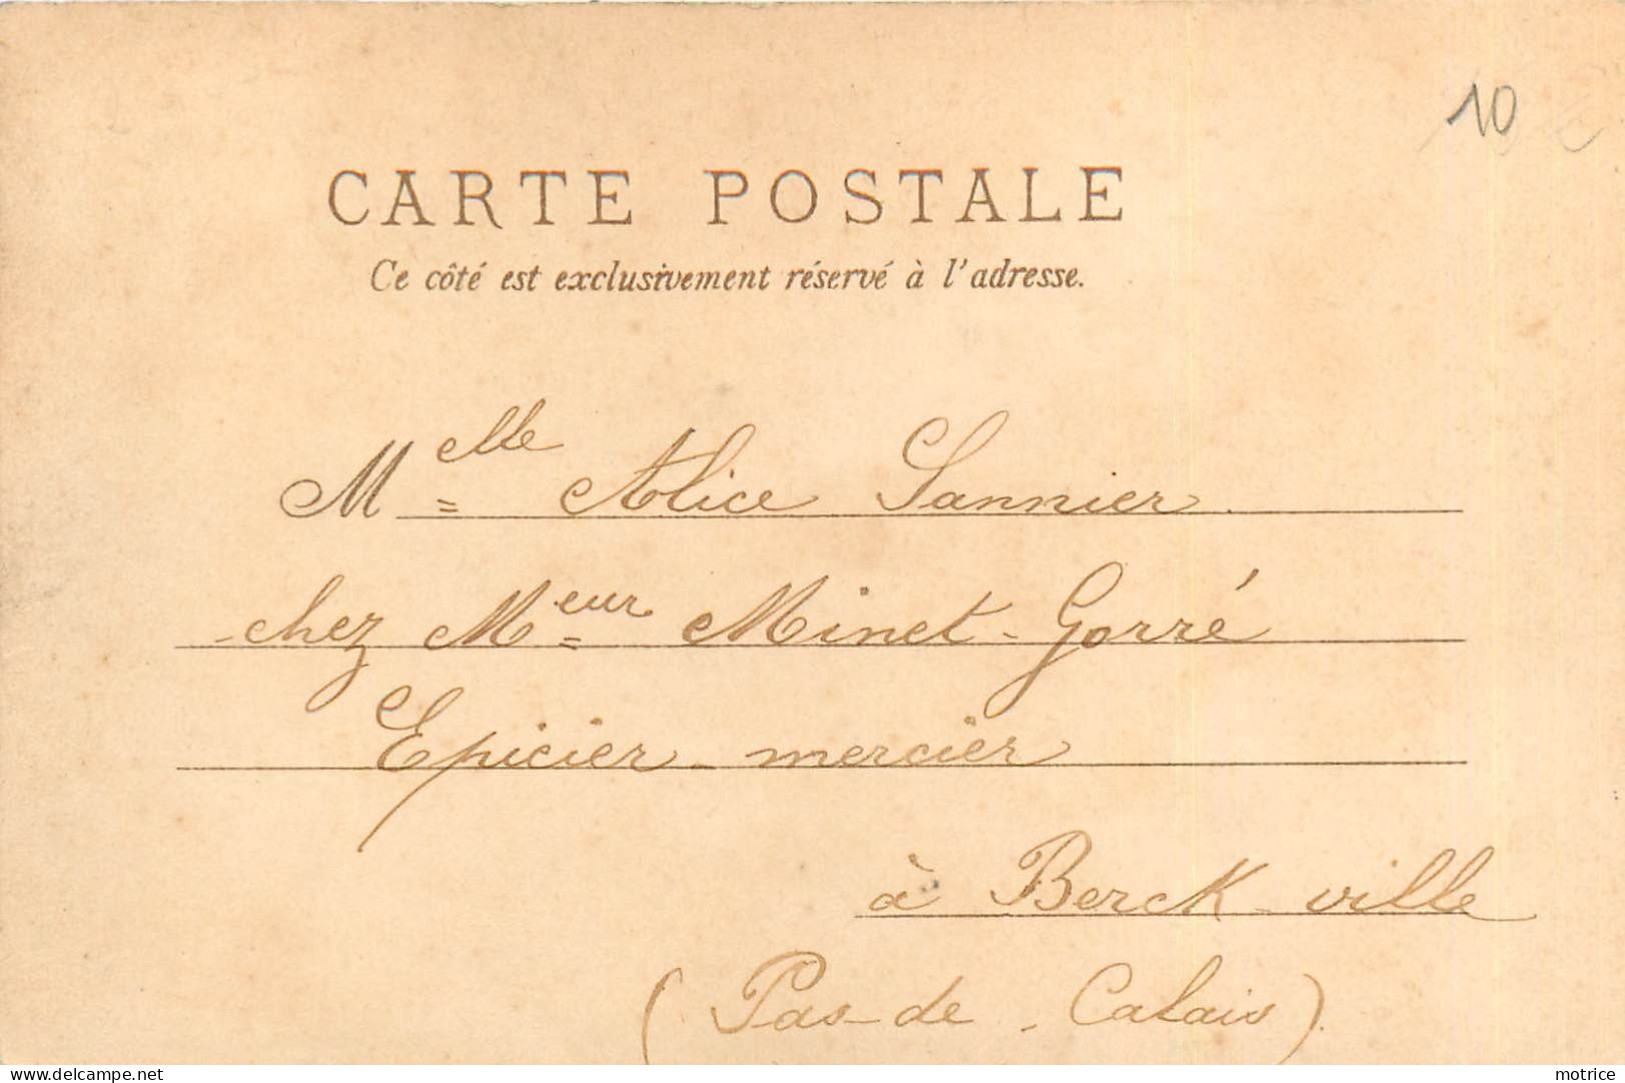 10
CARTE POSTALE
Ce côté est exclusivement réservé à l'adresse.
Melle Alice Sannier
chez Meur Minet-Gorré
Epicier-mercier
à Berck-ville
(Pas-de-Calais)
www.delcampe.net
motrice